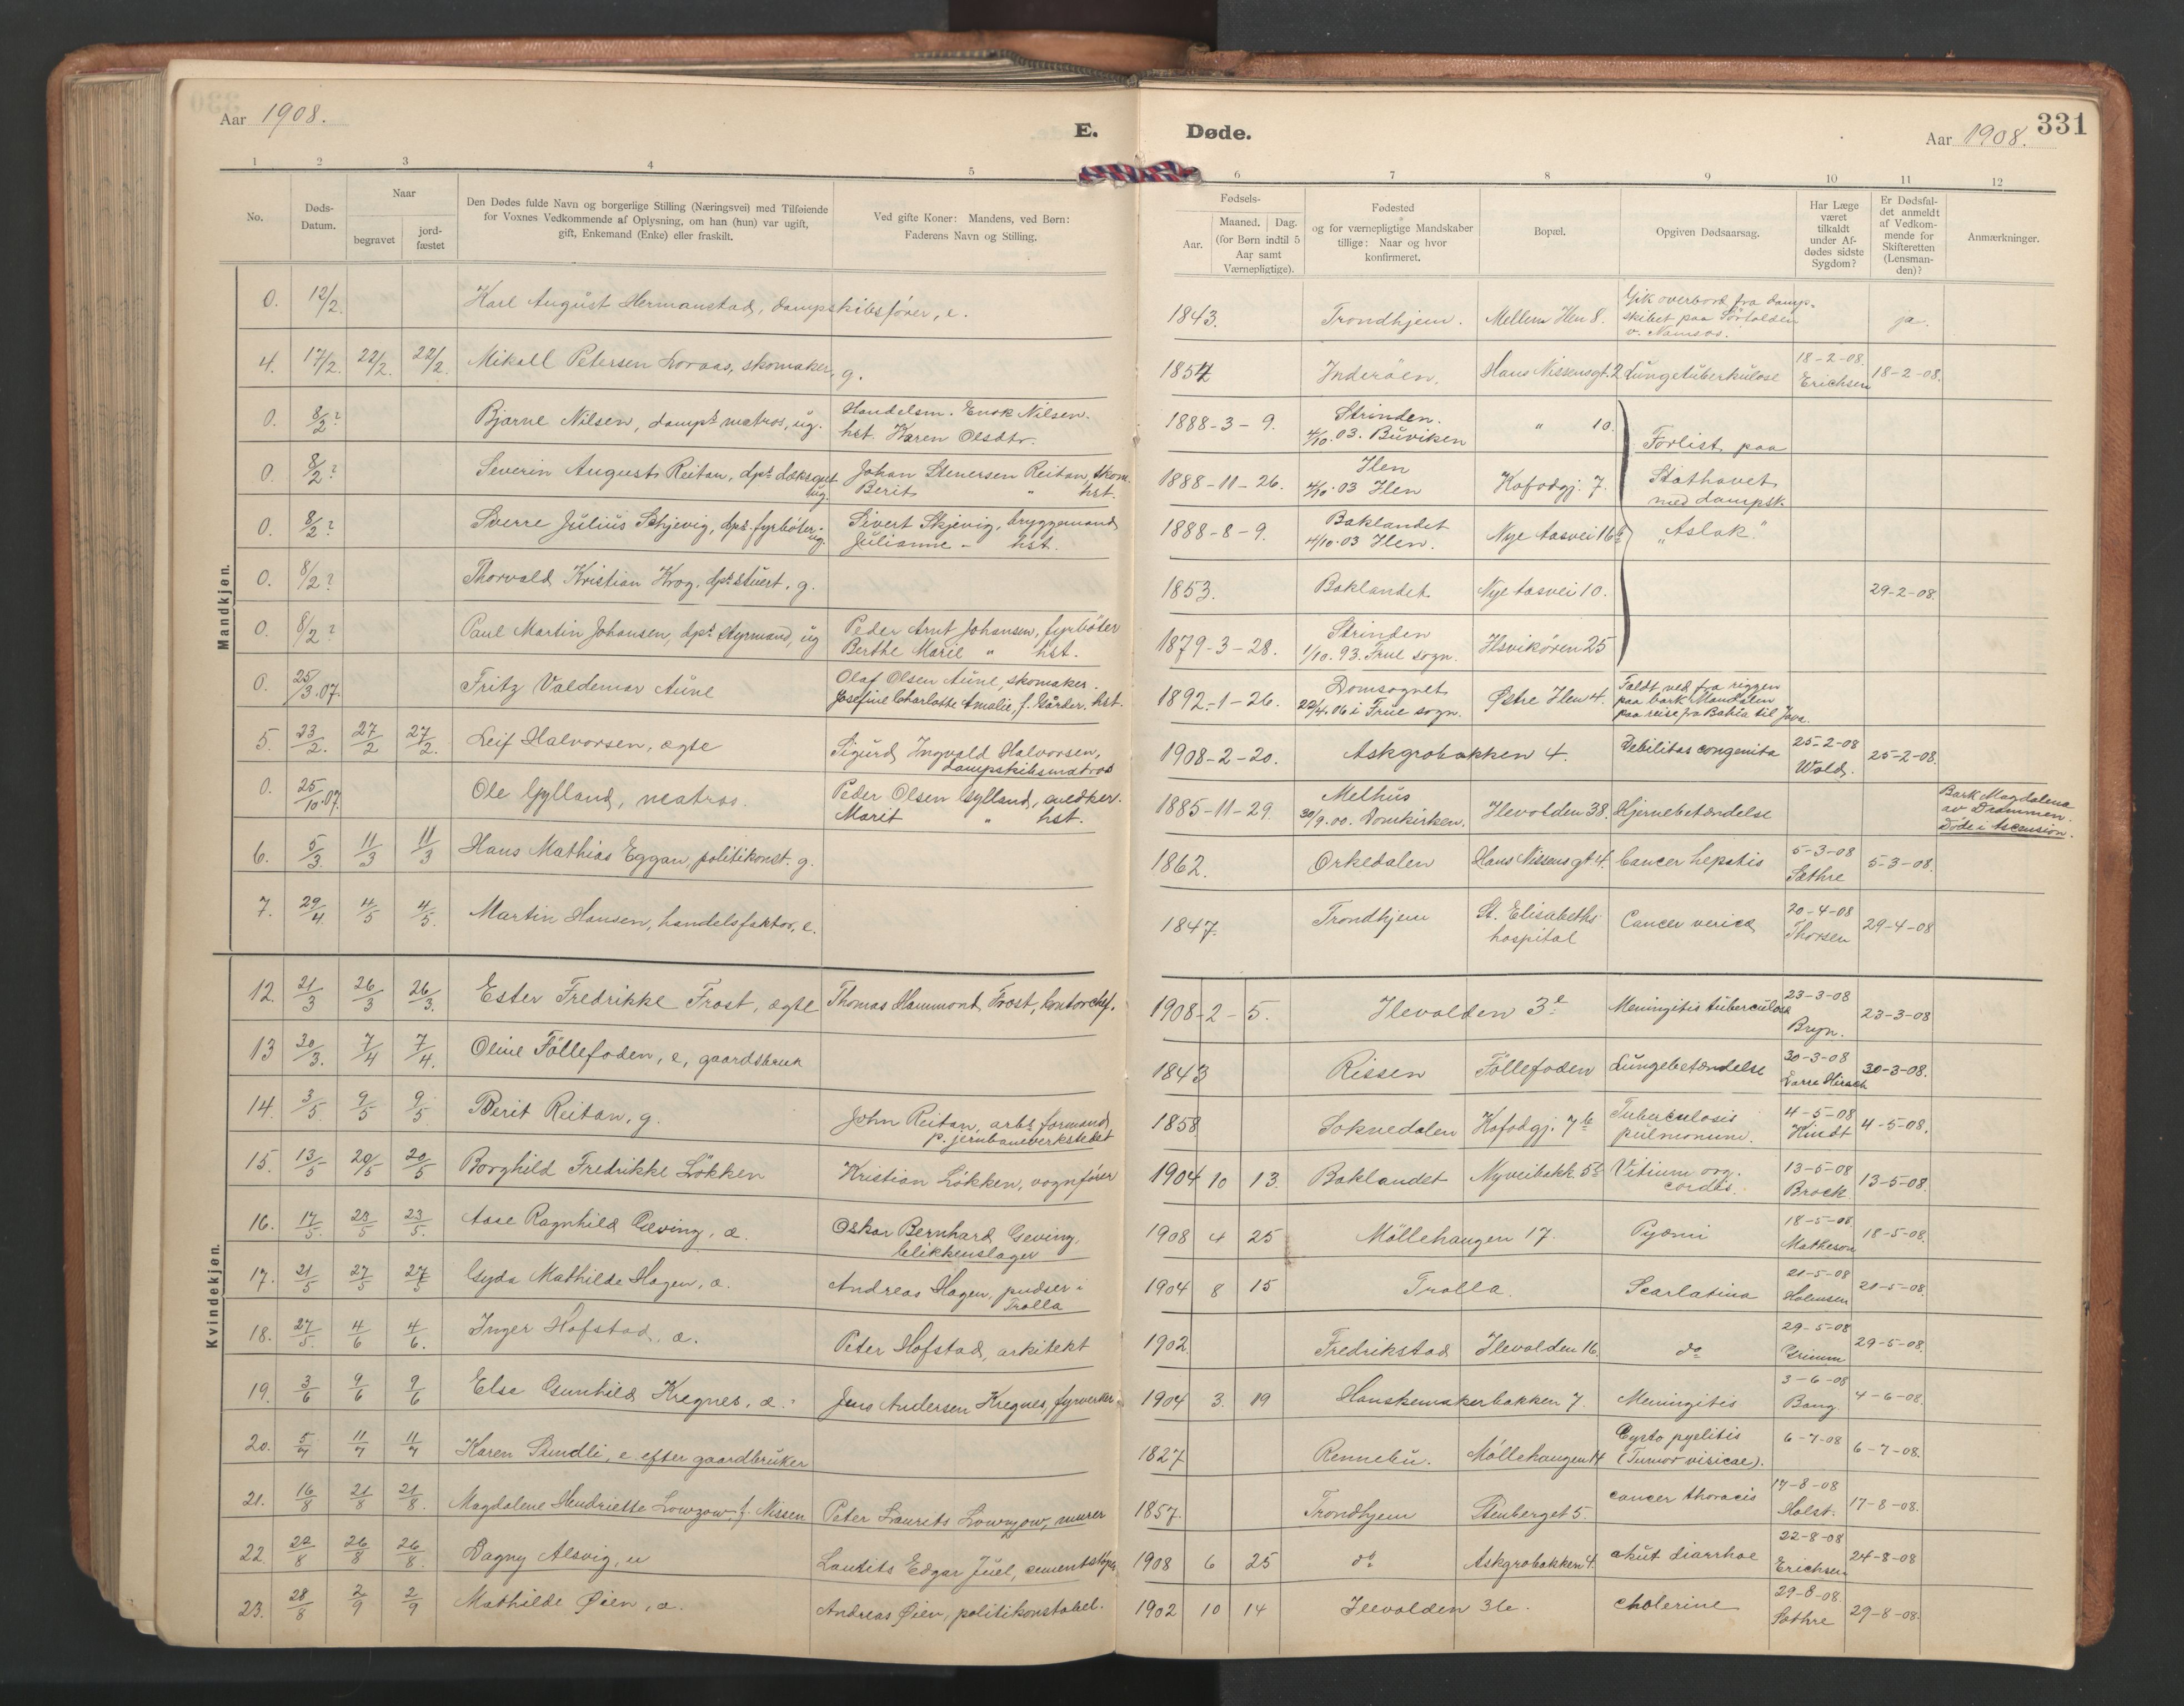 Aar 1908.
E.
Døde.
Aar 1908.
331
1 2 3 4 5 6 7 8 9 10 11 12
No.
Døds-Datum.
Naar
begravet
jord-fæstet
Den Dødes fulde Navn og borgerlige Stilling (Næringsvei) med Tilføiende
for Voxnes Vedkommende af Oplysning, om han (hun) var ugift,
gift, Enkemand (Enke) eller fraskilt.
Ved gifte Koner: Mandens, ved Børn:
Faderens Navn og Stilling.
Fødsels-
Aar.
Maaned. Dag.
(for Børn indtil 5
Aar samt
Værnepligtige).
Fødested
og for værnepligtige Mandskaber
tillige: Naar og hvor
konfirmeret.
Bopæl.
Opgiven Dødsaarsag.
Har Læge
været
tilkaldt
under Af-
dødes sidste
Sygdom?
Er Dødsfal-
det anmeldt
af Vedkom-
mende for
Skifteretten
(Lensman-
den)?
Anmærkninger.
Mandkjøn.
0. 12/2. Karl August Hermanstad, dampskibsfører, e. 1843. Trondhjem. Mellem Ilen 8. Gik overbord fra damp-
skibet paa
v. Namsos. ja.
4. 17/2. 22/2. 22/2. Mikall Petersen Loraas, skomaker, g. 1854 Inderöen. Hans Nissensgt. 2 Lungetuberkulose 18-2-08. Erichsen 18-2-08.
0. 8/2? Bjarne Nilsen, damps. matros, ug. Handelsm. Enok Nilsen.
hst. Karen Olsdtr. 1888-3-9. Strinden.
4/10.03. Buviken " 10. Forlist paa
0. 8/2? Severin August Reitan, dps. dæksgut ug. Johan Stenersen Reitan, skom.
Berit " hst. 1888-11-26. Ilen
4/10.03 Ilen Kofodgj. 7. Stathavet
med dampsk.
0. 8/2? Sverre Julius Schjevig, dps. fyrböter. ug. Sivert Skjevig, bryggemand
Julianne - hst. 1888-8-9. Baklandet
4/10.03 Ilen. Nye Aasvei 16 "Aslak."
0. 8/2? Thorvald Kristian Krog, dps. stuert. g. 1853. Baklandet Nye Aasvei 10. 29-2-08.
0. 8/2? Paul Martin Johansen, dps. styrmand, ug Peder Arnt Johansen, fyrböter
Berthe Marie " hst. 1879-3-28. Strinden
1/10.93. Frue sogn. Ilsvikören 25
0. 25/3.07. Fritz Valdemar Aune Olaf Olsen Aune, skomaker.
Josefine Charlotte Amalie, f. Gårder. hst. 1892-1-26. Domsognet
22/4.06 i Frue sogn. Østre Ilen 4. Faldt ned fra riggen
paa bark Mandalen
paa reise fra Bahia til Java.
5. 23/2. 27/2 27/2. Leif Halvorsen, ægte Sigurd Ingvald Halvorsen,
dampskibsmatros 1908-2-20. Askgrobakken 4. Debilitas congenita 25-2-08 Wold. 25-2-08.
0. 25/10.07. Ole Gylland, matros. Peder Olsen Gylland, snedker.
Marit " hst. 1885-11-29. Melhus
30/9.00. Domkirken. Ilevolden 38. Hjernebetændelse Bark Magdalena
av Drammen.
Döde i Ascension.
6. 5/3. 11/3 11/3 Hans Mathias Eggan, politikonst. g. 1862. Orkedalen Hans Nissensgt 4. Cancer hepatis 5-3-08 Sæthre 5-3-08.
7. 29/4 4/5 4/5 Martin Hansen, handelsfaktor, e. 1847. Trondhjem St. Elisabeths
hospital Cancer vesica 20-4-08 Thorsen 29-4-08
Kvindekjøn.
12. 21/3 26/3 26/3. Ester Fredrikke Frost, ægte Thomas Hammont Frost, kontorchef. 1908-2-5. Ilevolden 3e Meningitis tuberculosa 23-3-08 Bryn. 23-3-08
13 30/3. 7/4 7/4. Oline Föllefoden, e, gaardsbruk 1843 Rissen Föllefoden Lungebetændelse 30-3-08 Hirsch 30-3-08.
14. 3/5 9/5 9/5 Berit Reitan, g. John Reitan, arbs. formand
p. jernbaneverkstedet 1858 Soknedalen Kofodgj. 7b Tuberculosis
pulmonum. 4-5-08 Kindt 4-5-08.
15. 13/5 20/5 20/5 Borghild Fredrikke Lökken Kristian Lökken, vognfører 1904 10 13. Baklandet Nyveibakk. 5b Vitium org.
cordis. 13-5-08 Brock 13-5-08.
16. 17/5. 23/5 23/5. Aase Ragnhild Geving, æ. Oskar Bernhard Geving,
blikkenslager 1908 4 25 Möllehaugen 17. Pyæmi 18-5-08. Matheson 18-5-08.
17. 21/5 27/5 27/5 Gyda Mathilde Hagen, æ. Andreas Hagen, pudser i
Trolla 1904 8 15 Trolla. Scarlatina 21-5-08 Holmsen 21-5-08.
18. 27/5. 4/6 4/6. Inger Hofstad, æ. Peter Hofstad, arkitekt 1902. Fredrikstad Ilevolden 16. do 29-5-08 Grimm 29-5-08.
19. 3/6 9/6 9/6 Else Gunhild Kregnes, æ. Jens Andersen Kregnes, fyrverker 1904 3. 19 Hanskemakerbakken 7. Meningitis 3-6-08 Bang. 4-6-08.
20. 5/7 11/7 11/7 Karen Sundli, e. efter gaardbruker 1827. Rennebu. Möllehaugen 14 Cysto pyelitis
(Tumor visicae). 6-7-08 6-7-08.
21. 16/8 21/8 21/8. Magdalene Hendriette Lowzow, f. Nissen Peter Laurits Lowzow, murer 1857. Trondhjem Stenberget 5. cancer thoracis 17-8-08 Holst. 17-8-08.
22. 22/8 26/8 26/8. Dagny Alsvig, u Laurits Edgar Juel, cementstöper 1908 6 25 do Askgrobakken 4. akut diarrhoe 22-8-08 Erichsen 24-8-08
23. 28/8 2/9 2/9 Mathilde Øien, æ. Andreas Øien, politikonstabel. 1902 10 14 Ilevolden 3b. Cholerine 29-8-08. Sæthre 29-8-08.